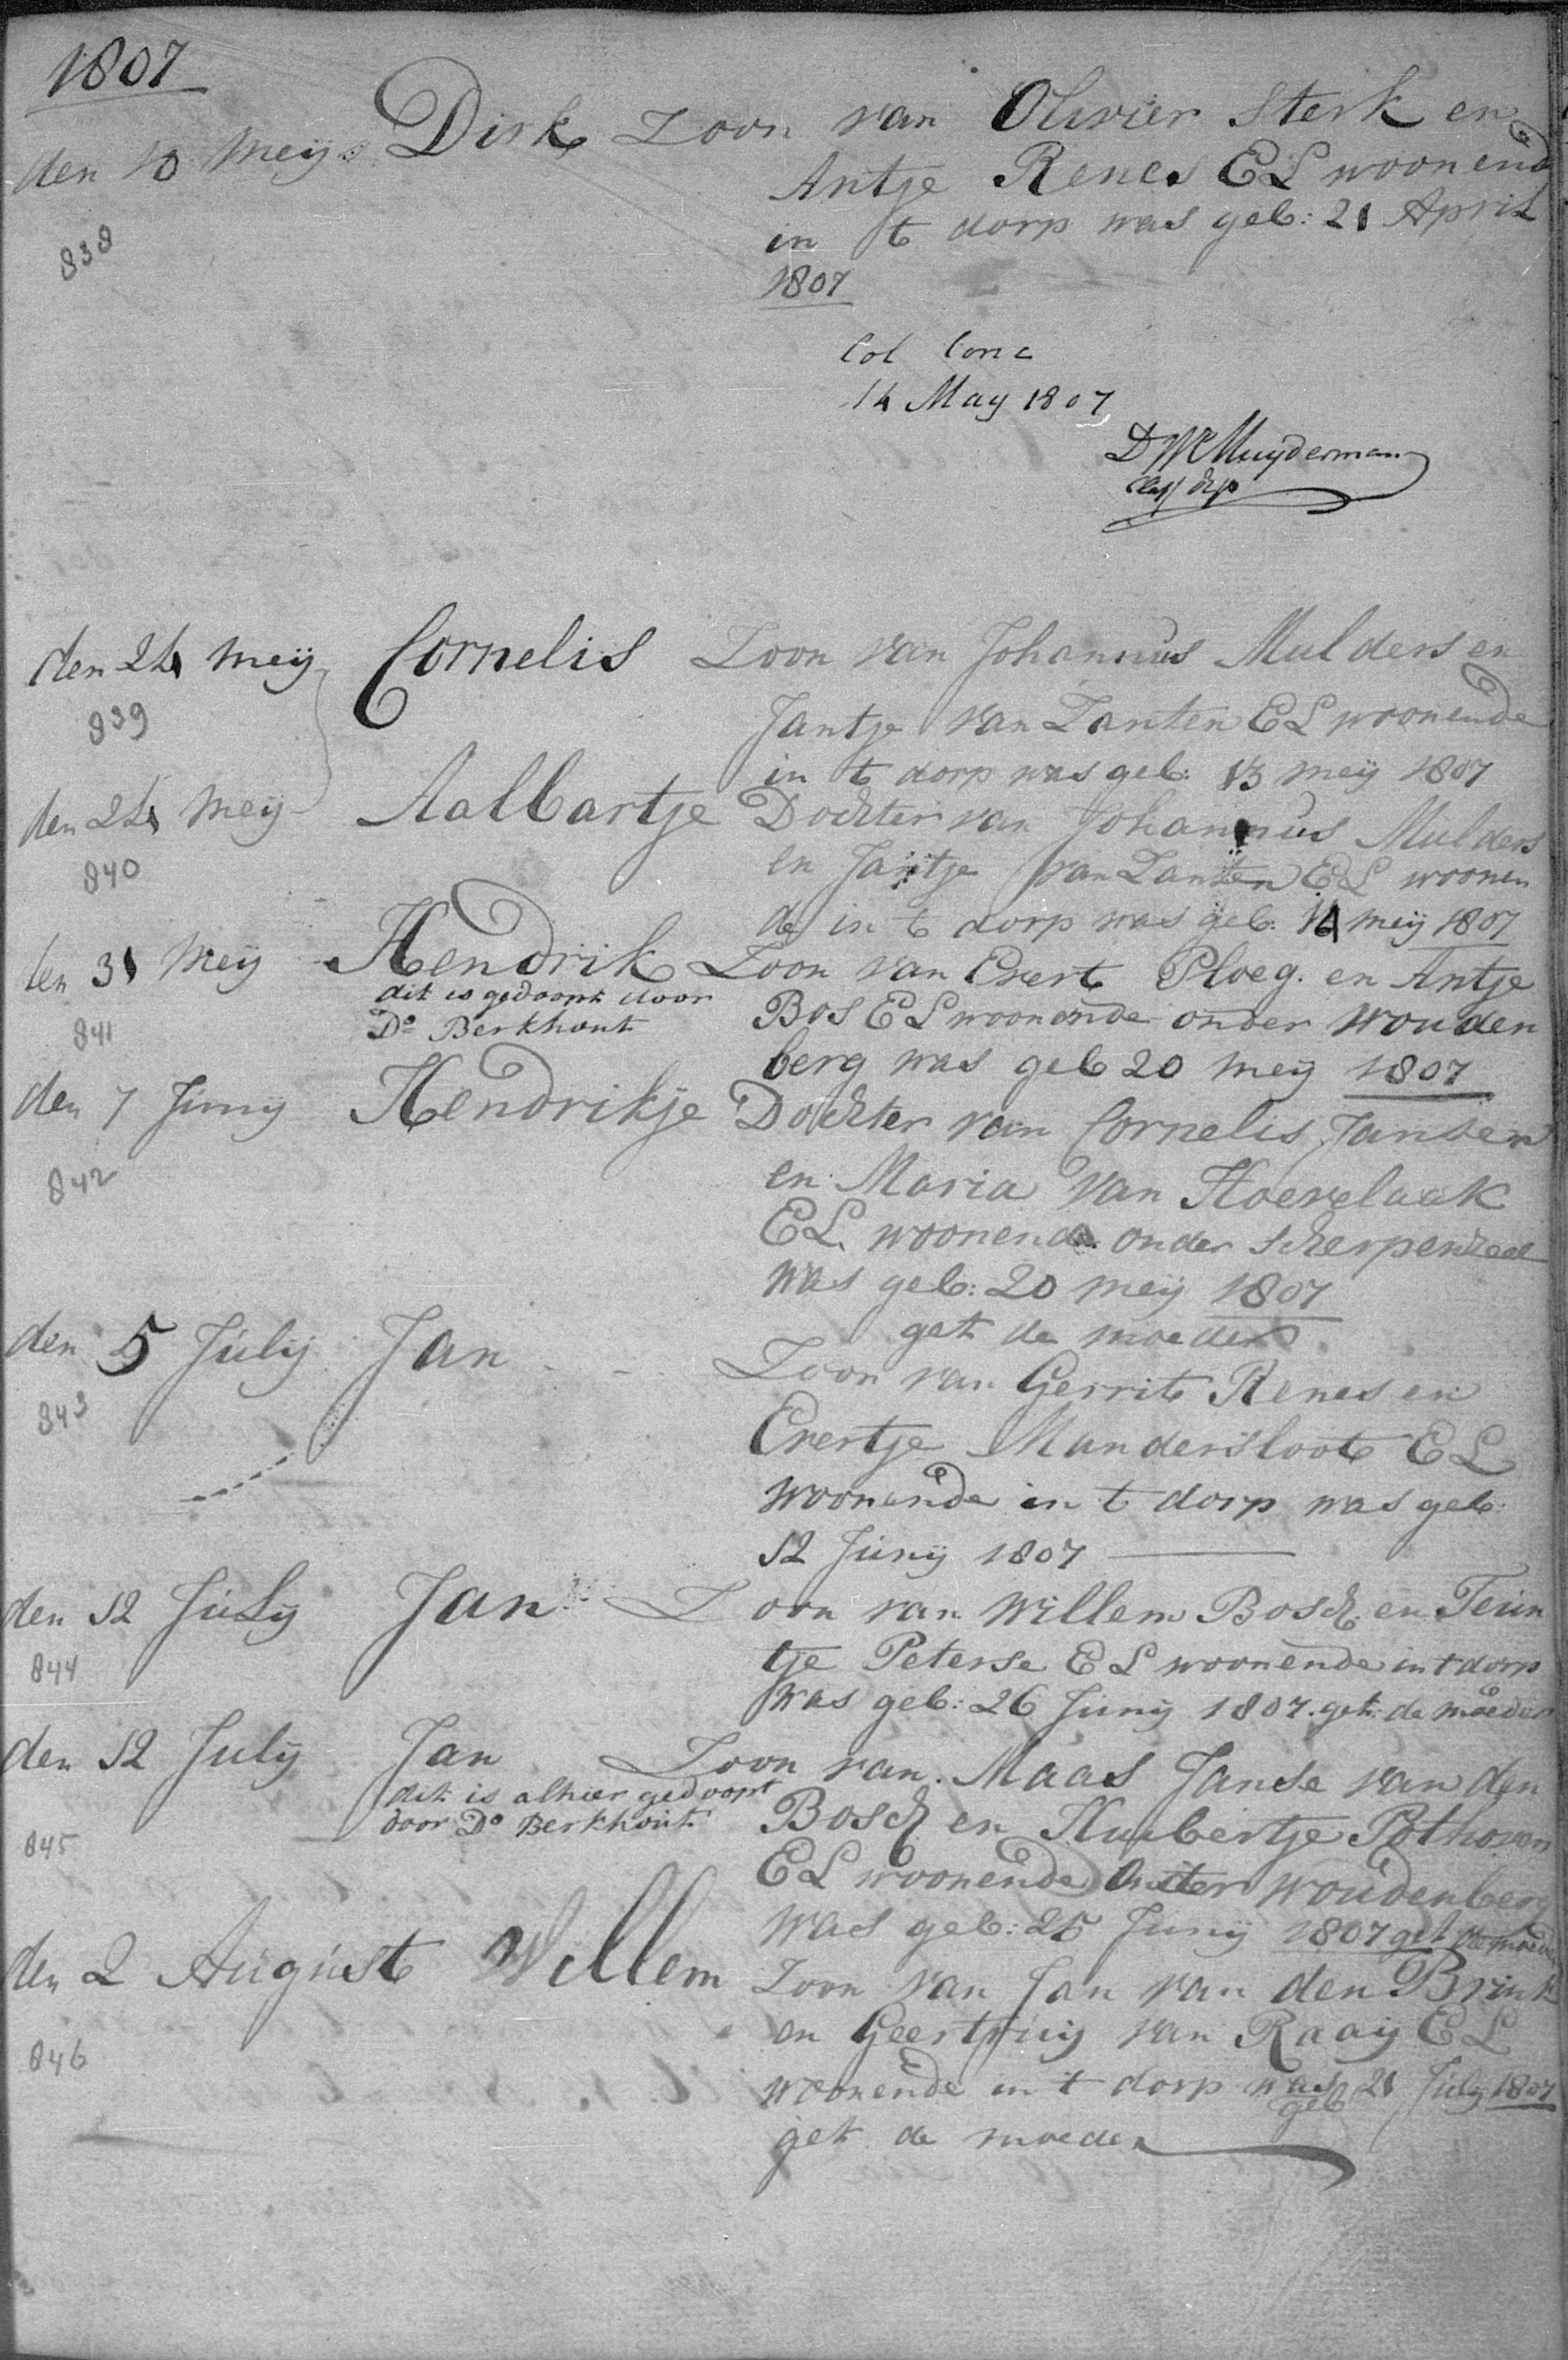 1807
den 10 Meij Dirk Zoon van Olivier Sterk en
Antje Renes EL woonend
in t dorp was geb: 21 April
838
1807
Col Conc
14 May 1807
D W Muyderman
Class dep
den 24 Meij Cornelis Zoon van Johannus Mulders en
839
Jantje van Zanten EL woonende
in t dorp was geb: 13 meij 1807
den 24 Meij Aalbartje Dochter van Johannus Mulders
840
en Jantje van Zanten EL woonen
de in t dorp was geb: 14 meij 1807
den 31 Meij Hendrik Zoon van Evert Ploeg. en Antje
dit is gedoopt door
Do Berkhout
841
Bos EL woonende onder Wouden
berg was geb 20 meij 1807
den 7 Junij Hendrikje Dochter van Cornelis Jansen
842
en Maria van Hoevelaak
EL woonende onder Scherpenzeel
was geb: 20 meij 1807
get de moeder
den 5 Julij Jan Zoon van Gerrit Renes en
843
Evertje Mandersloot EL
woonende in t dorp was geb:
12 Junij 1807
den 12 Julij Jan Zoon van Willem Bosch en Teun
844
tje Peterse EL woonende in t dorp
was geb: 26 Junij 1807. get: de moeder
den 12 Julij Jan Zoon van Maas Janse van den
dit is alhier gedoopt
door Do Berkhout
845
Bosch en Huibertje Pothoven
EL woonende onder woudenberg
was geb: 25 Junij 1807 get de moeder
den 2 August Willem Zoon van Jan van den Brink
846
en Geertruij van Raaij EL
woonende in t dorp was geb 21 July 1807
get de moeder